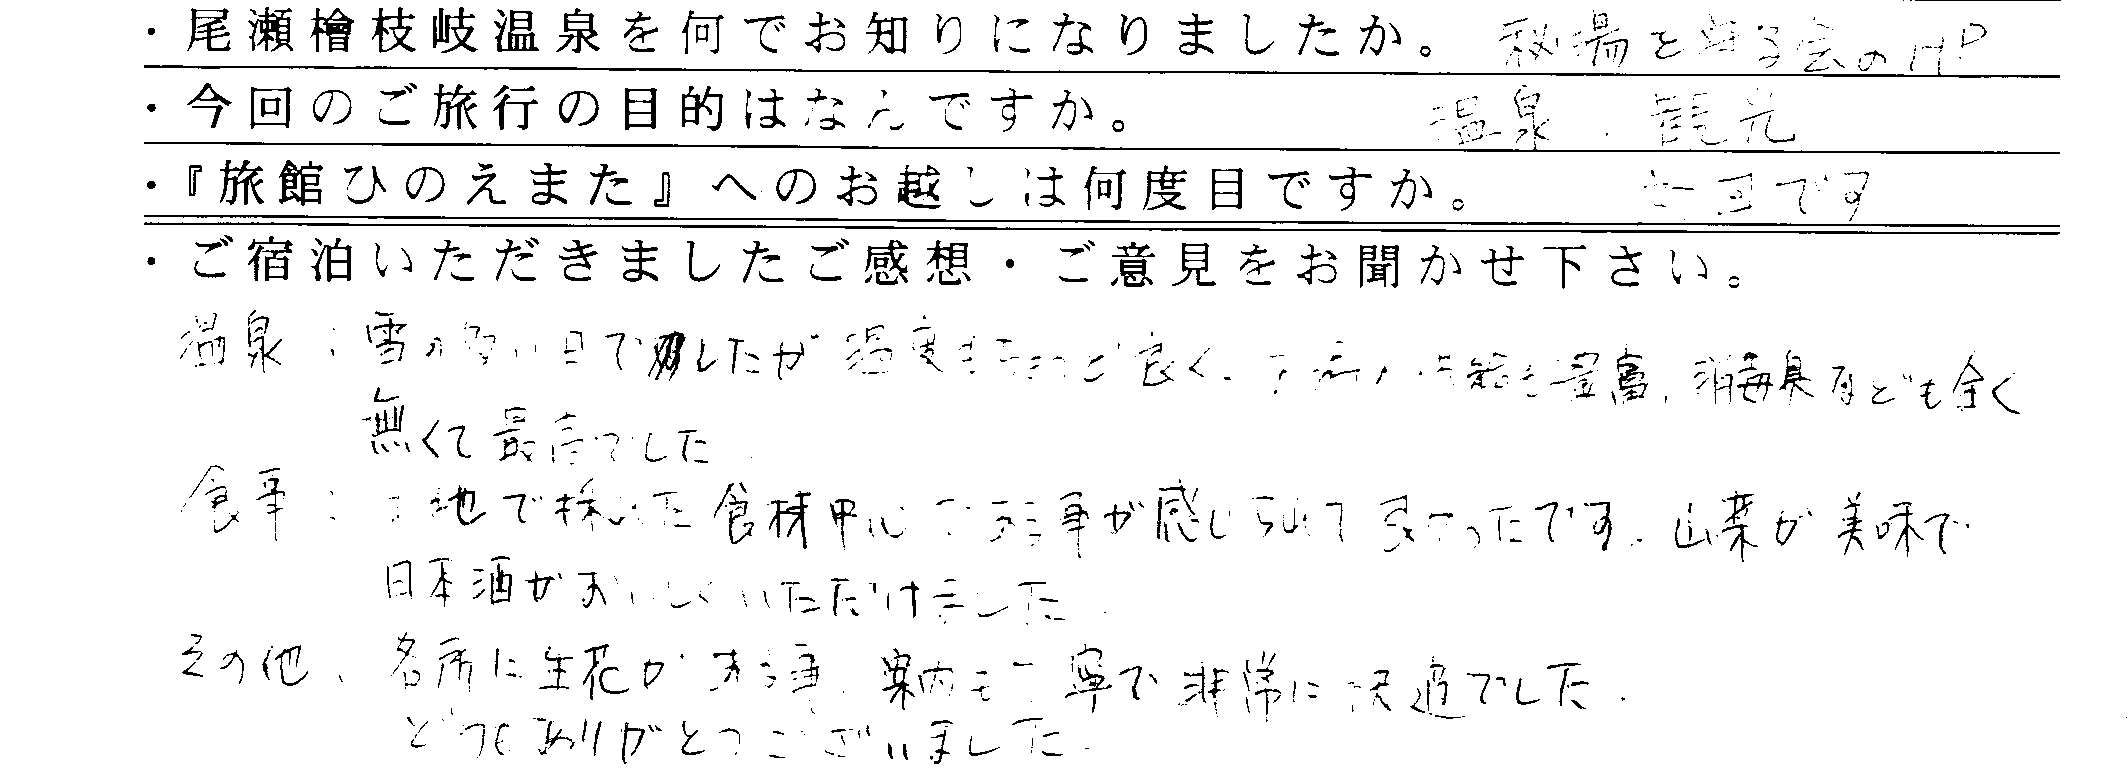 ・尾瀬檜枝岐温泉を何でお知りになりましたか。 秘湯を守る会のHP
・今回のご旅行の目的はなんですか。 温泉・観光
・『旅館ひのえまた』へのお越しは何度目ですか。 目です
・ご宿泊いただきましたご感想・ご意見をお聞かせ下さい。
温泉：雪の多い日でしたが温度もちょうど良く、豊富、消毒臭なども全く
無くて最高でした。
食事：土地で採れた食材中心で、ある事が感じられて良かったです。山菜が美味で
日本酒がおいしくいただけました。
その他、各所に生花がある事、案内も丁寧で非常に快適でした。
どうもありがとうございました。